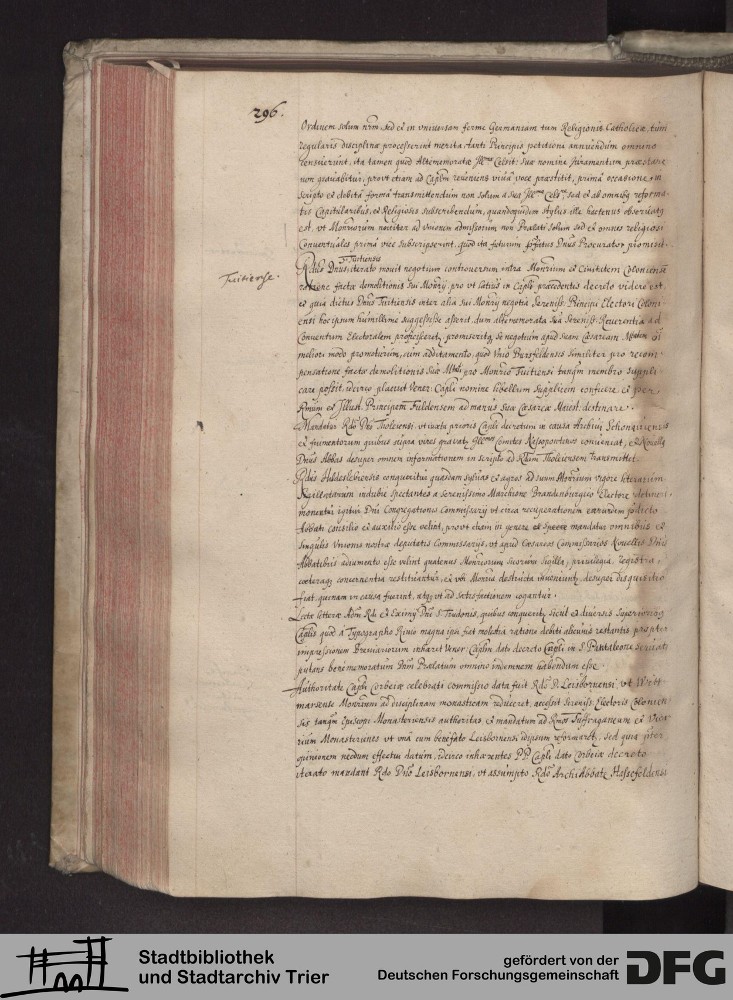 296.
Ordinem solum nrm sed et in vniuersam ferme Germaniam tum Religionis Catholicæ, tum
regularis disciplinæ processerint merita, tanti Principis petitioni annuendum omnino
censuerunt, ita tamen quod Altememoratæ Illmæ Celsit: suæ nomine iuramentum præstare
non grauabitur, prout etiam ad Caplm reueniens viuâ voce præstitit, primâ occasione in
scripto et debitâ formâ transmittendum non solum a sua Illma Celst. sed et ab omnibus reforma-
tis Capitularibus, et Religiosis subscribendum, quandoquidem stylus ille hactenus obseruatus
est, vt Monriorum nouiter ad vnionem admissorum non Prælati solum sed et omnes religiosi
Conuentuales primâ vice subscripserint, quod ita futurum Dnus Procurator promisit.
Tuitiense.
Rdus Dnus Tuitiensis iterato mouit negotium controuersum intra Monrium et Ciuitatem Coloniensem
ratione factæ demolitionis sui Monrij, pro vt latius in Caplj præcedentis decreto videre est.
et quia dictus Dnus Tuitiensis inter alia sui Monrij negotia Sereniss. Principi Electori Coloni-
ensi hoc ipsum humillime suggessisse asserit, dum altememorata Sua Sereniss. Reuerentia ad
Conuentum Electoralem proficisceretur, promiserit se negotium apud suam Cæsaream Mtem
meliori modo promoturum, cum additamento, quod Vnio Bursfeldensis similiter pro recom-
pensatione factæ demolitionis Suæ Mtati pro Monrio Tuitiensi tanqm membro suppli-
care possit, idcirco placuit Vener: Caplj nomine libellum supplicem conficere et per
Rmum et Illust. Principem Fuldensem ad manus Suæ Cæsareæ Maiest. destinare.
Mandatur Rdo Dno Tholeiensi, vt iuxta prioris Caplj decretum in causa Archiuij Schonauiensis
et frumentorum quibus supra vires grauatur Comites conueniat, et Rmis
Dnus Abbas desuper omnem informationem in scripto ad Rdum Tholeiensem transmittet.
Rdus Huldeslebiensis conqueritur quasdam syluas et agros ad suum Monrium vigore literarum
indubie spectantes a Serenissimo Marchione Brandenburgico Electore detineri,
monentur igitur Dni Congregationis Commissarij vt circa recuperationem earundem prædicto
Abbati consilio et auxilio esse velint, prout etiam in genere mandatur omnibus et
singulis Vnionis nostræ deputatis Commissarijs, vt apud Cæsareos Commissarios Nouellis Dnis
Abbatibus adiumento esse velint quatenus Monriorum suorum sigilla, priuilegia, registra,
cæteraque concernentia restituantur, et vbi Monria destructa inueniuntur desuper disquisitio
fiat, quinam in causa fuerint, atque vt ad satisfactionem cogantur.
Lectæ litteræ Adm. Rdi et Eximij Dni S. Trudonis, quibus conqueritur sicut et diuersis superioribus
Caplis quod a Typographo Rinio magna ipsi fiat molestia ratione debiti alicuius restantis propter
impressionem Breuiariorum inhæret Vener Caplum dato decreto Caplj in S. Pantaleone seruati
putans bene memoratum Dnm Prælatum omnino indemnem habendum esse.
Authoritate Caplj Corbeiæ celebrati commissio data fuit Rdo P. Leisbornensi vt Wiet-
marsense Monrium ad disciplinam monasticam reduceret, accessit Sereniss. Electoris Colonien-
sis tanqm Episcopi Monasteriensis authoritas et mandatum ad Rmos Suffraganeum et Vica-
rium Monasterienses vt vnâ cum benefato Leisbornensi idipsum reformaretur, sed quia præter
opinionem nedum effectui datum, idcirco inhærentes PP. Caplj dato Corbeiæ decreto
iterato mandant Rdo Pno Leisbornensi, vt assumpto Rdo ArchiAbbate Hassefeldensi
Stadtbibliothek
und Stadtarchiv Trier
gefördert von der
Deutschen Forschungsgemeinschaft
DFG